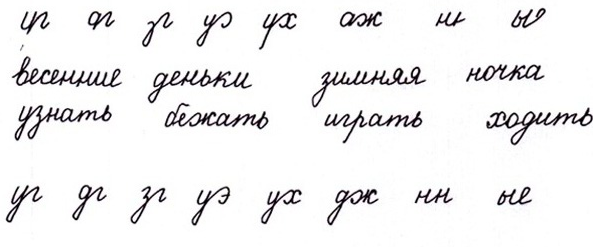 уг дг зг уэ ух дж нн ые
весенние деньки зимняя ночка
узнать бежать играть ходить
уг дг зг уэ ух дж нн ые